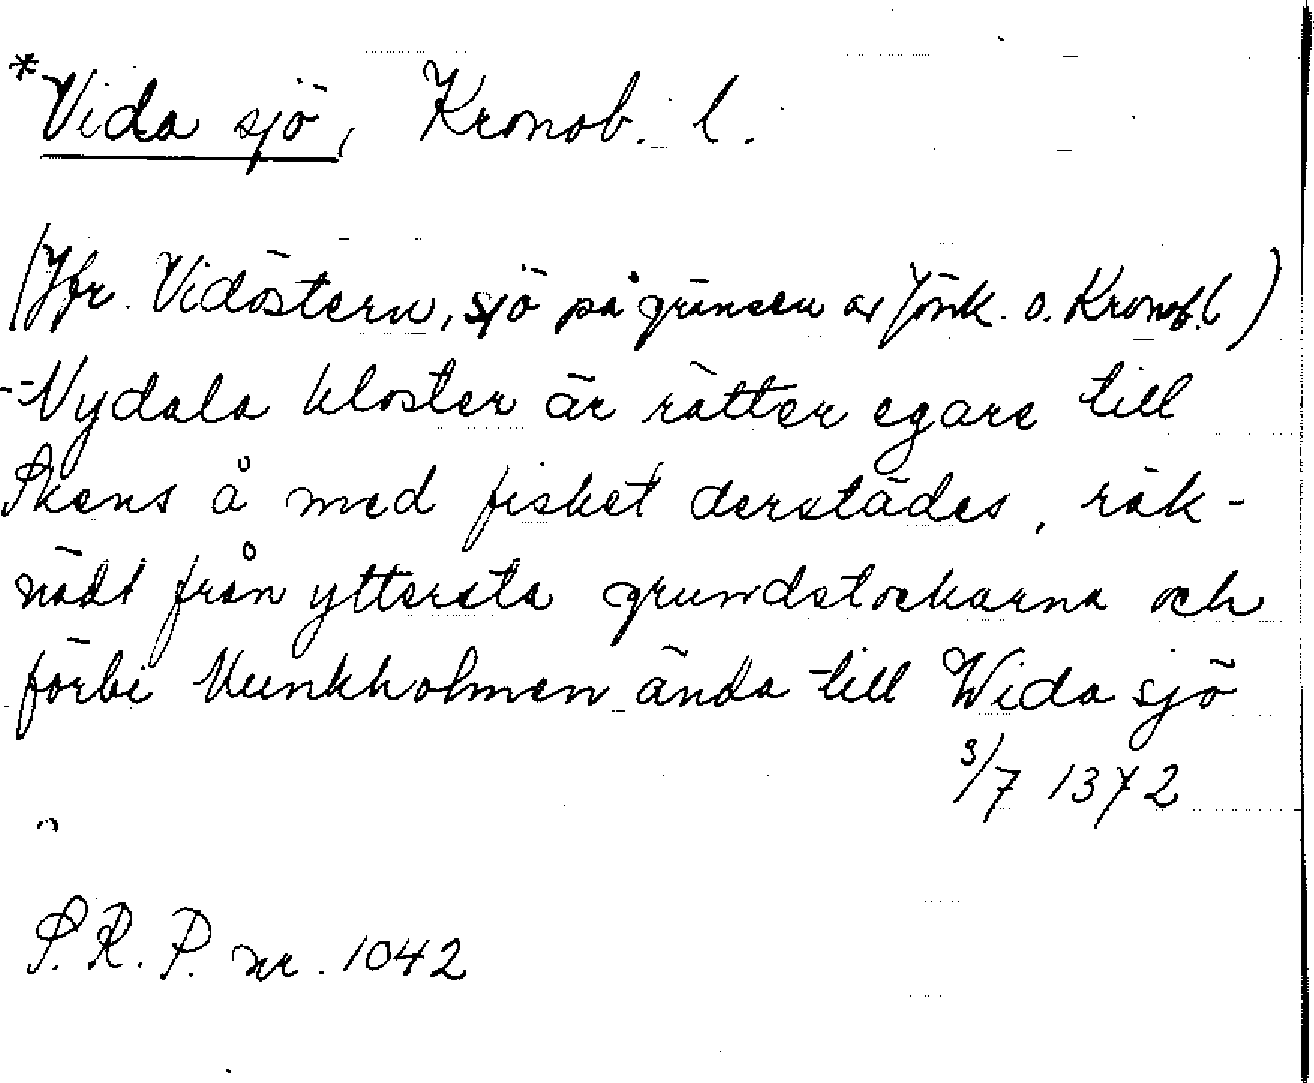 *Vida sjö, Kronob. l.
(Jfr. Vidöstern, sjö på gränsen av Jönk. o. Kronob. l)
--Nydala kloster är rätter egare till
Skens å med fisket derstädes, räk-
nädt från yttersta grundstockarna och
förbi Munkholmen ända till Wida sjö
3/7 1372
S.R.P. nr. 1042